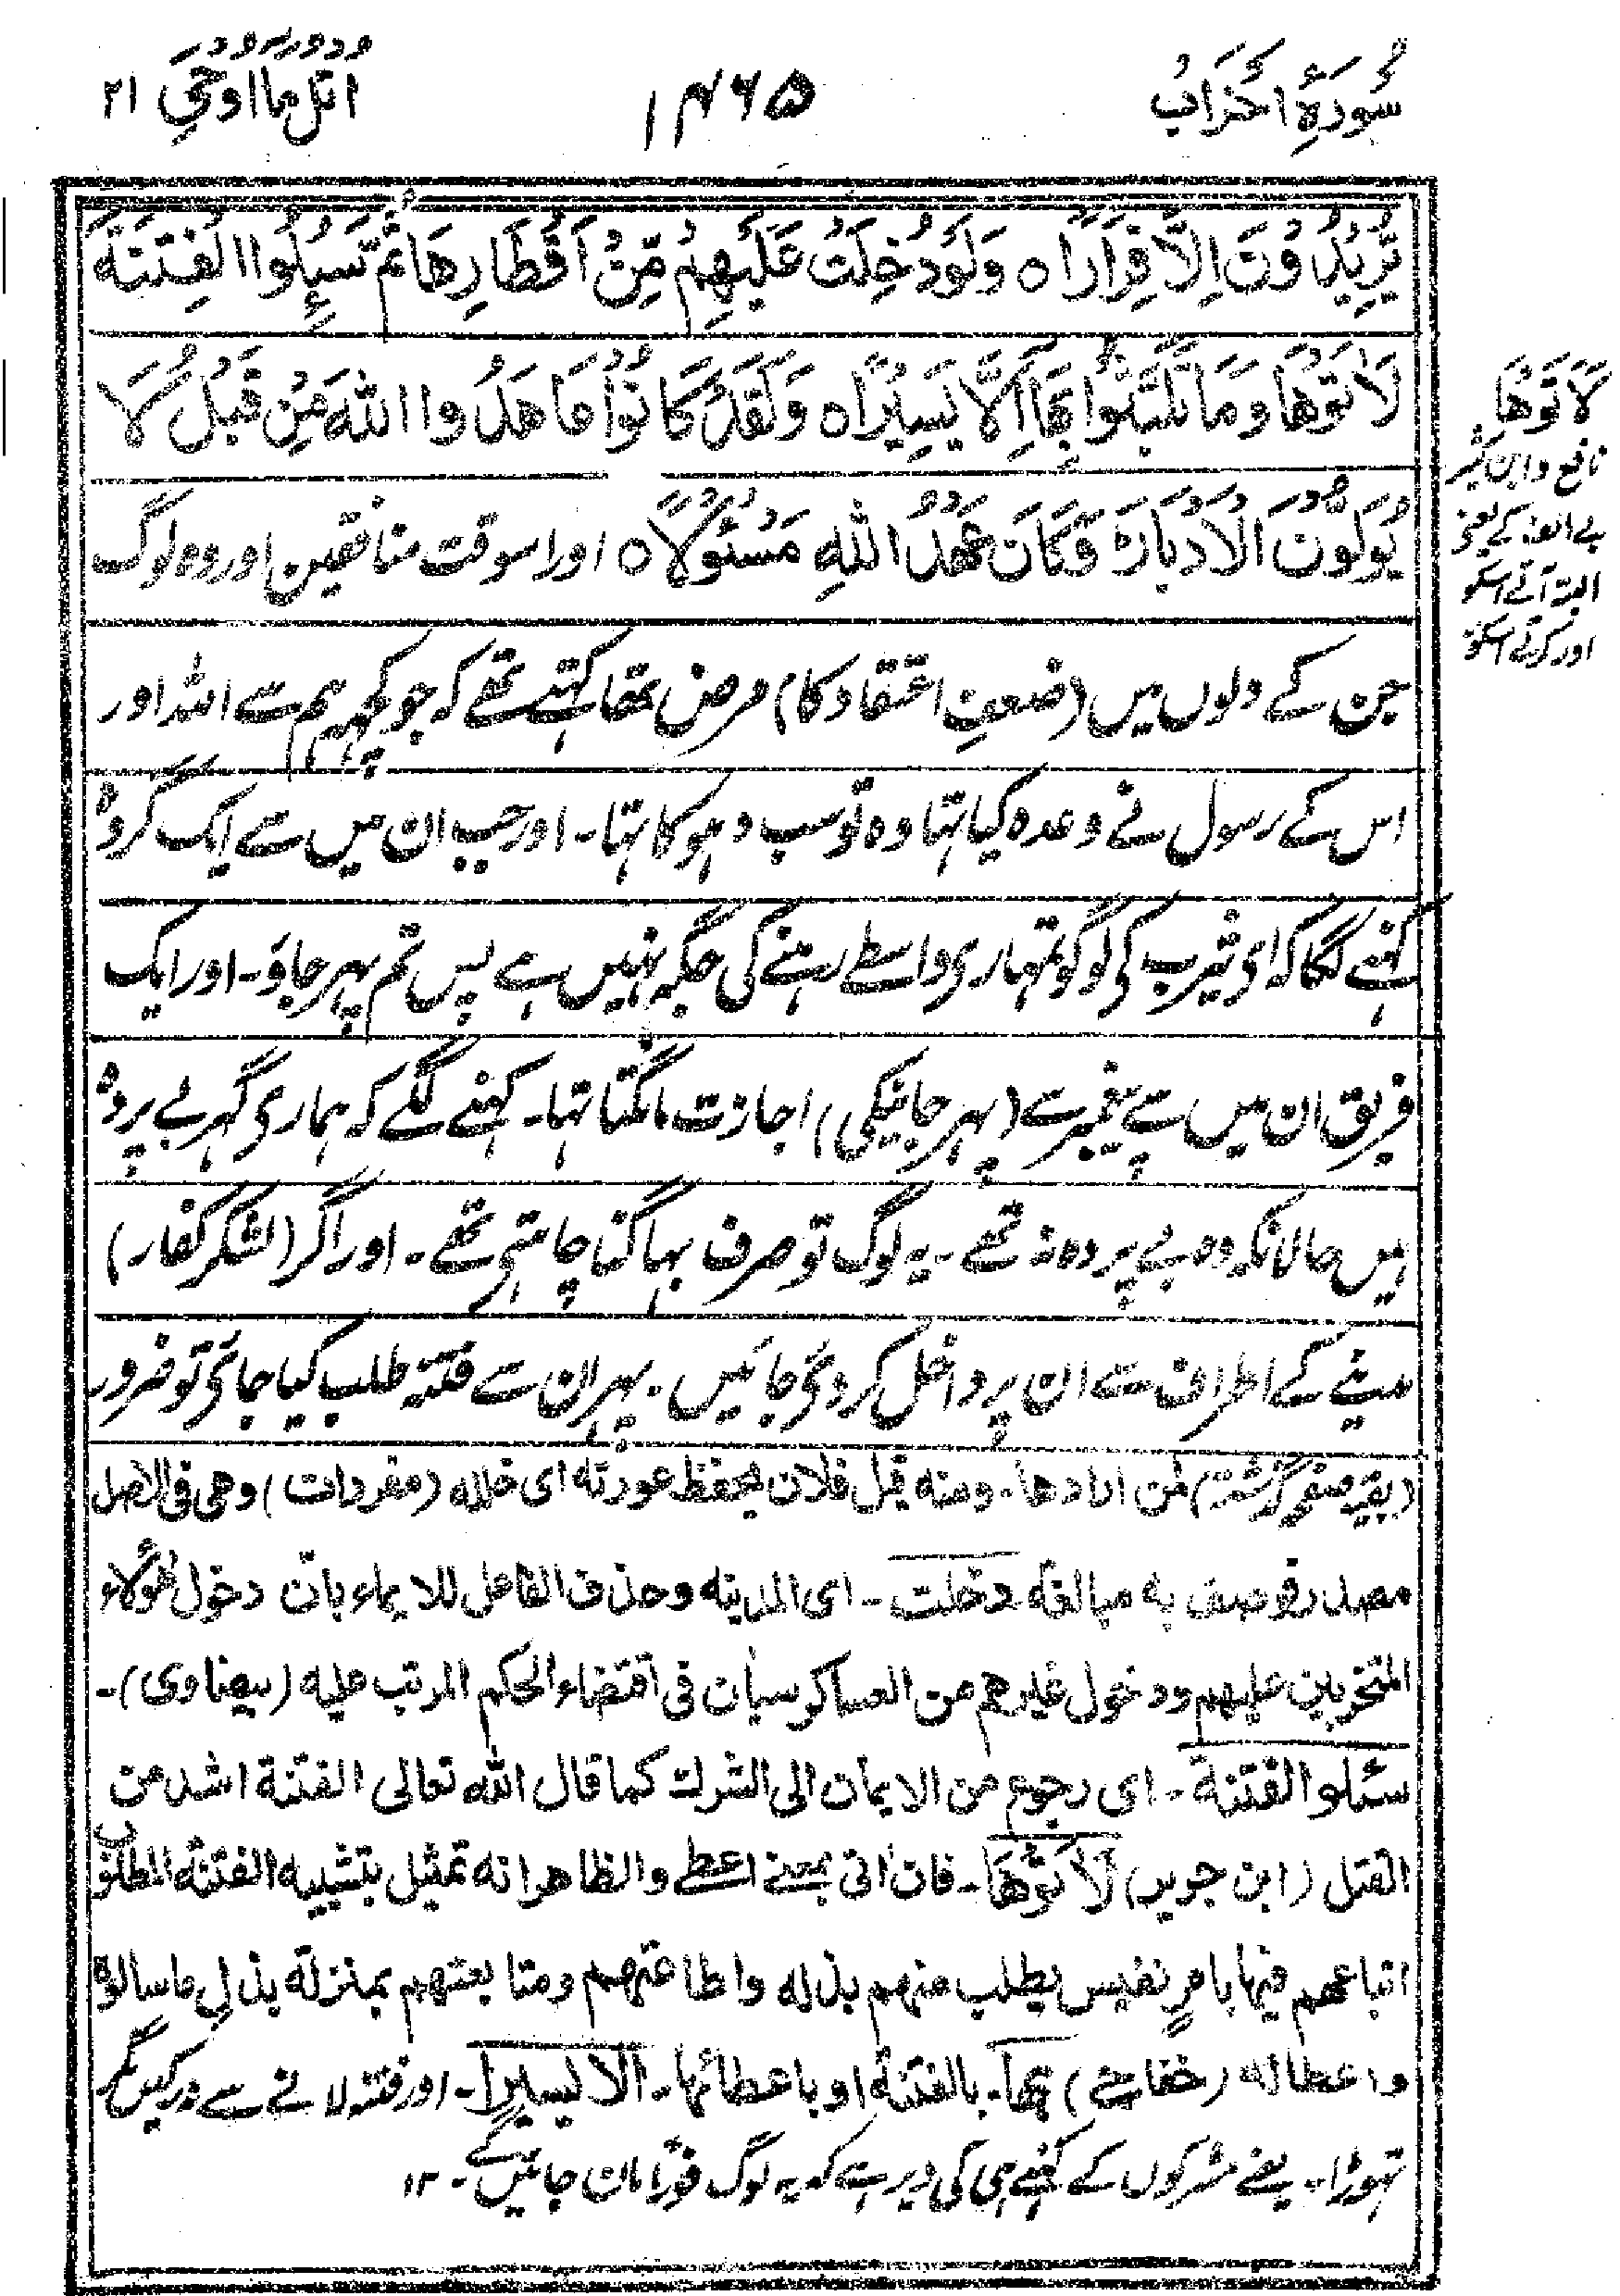 سُورَۂ اَحْزَابْ
۱۴۶۵
اُتْلُ مَا اُوْحِيَ ۲۱
يُّرِيْدُوْنَ اِلَّا فِرَارًا ہ وَلَوْ دُخِلَتْ عَلَيْهِمْ مِّنْ اَقْطَارِهَا ثُمَّ سُئِلُوا الْفِتْنَةَ
لَاٰتَوْهَا وَمَا تَلَبَّثُوْا بِهَآ اِلَّا يَسِيْرًا ہ وَلَقَدْ كَانُوْا عَاهَدُوا اللّٰهَ مِنْ قَبْلُ لَا
يُوَلُّوْنَ الْاَدْبَارَ ؕ وَكَانَ عَهْدُ اللّٰهِ مَسْئُوْلًا ہ اور اسوقت منافقین اور وہ لوگ
جن کے دلوں میں (ضعفِ اعتقاد کا) مرض تھا کہتے تھے کہ جو کچھ ہم سے اللہ اور
اس کے رسول نے وعدہ کیا تہا وہ تو سب دہوکا تہا۔ اور جب ان میں سے ایک گروہ
کہنے لگا کہ ای یثرب کی لوگو تمہاری واسطے رہنے کی جگہ نہیں ہے پس تم پہر جاؤ۔ اور ایک
فریق ان میں سے پیغمبر سے (پہر جانیکی) اجازت مانگتا تہا۔ کہنے لگے کہ ہماری گہر بے پردہ
ہیں حالانکہ وہ بے پردہ نہ تھے۔ یہ لوگ تو صرف بہاگنا چاہتی تھے۔ اور اگر (لشکر کفار)
مدینے کے اطراف سے ان پر داخل کر دئے جائیں۔ پہر ان سے فتنہ طلب کیا جائے تو ضرور
(بقیہ صفحہ گزشتہ) لمن ارادها۔ ومنه قيل فلان يحفظ عورته ای خلله (مفردات) وهی فی الاصل
مصدر فوصف به مبالغة دخلت۔ ای المدينه وحذف الفاعل للايماء بان دخول هٰؤلاء
المتحزبين عليهم ودخول غيرهم من العساكر سيان فی اقتضاء الحكم المرتب عليه (بيضاوی)۔
سئلو الفتنة۔ ای رجوع من الايمان الى الشرك كما قال الله تعالى الفتنة اشد من
القتل (ابن جرير) لَاٰتَوْهَا۔ فان اتى بمعنے اعطے والظاهر انه تمثيل بتشبيه الفتنة المطلوب
اتباعهم فيها بامرٍ نفيس يطلب منهم بذله واطاعتهم ومتابعتهم بمنزلة بذلِ ما سالوه
واعطائه (خفاجے) بها۔ بالفتنة او باعطائها۔ الا يسيرا۔ اور فتنہ لانے سے نہ رکیں گے
تہوڑا۔ یعنے مشرکوں کے کہنے ہی کی دیر ہے کہ یہ لوگ فوراً مان جائیں گے۔ ۱۲
لَاَتَوْهَا
نافع و ابن کثیر
بے الف کے یعنی
البتہ آتے اسکو
اور کرتے اسکو